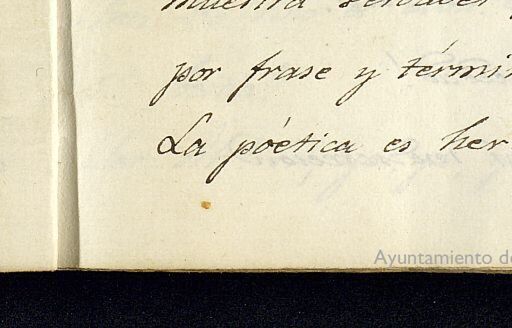 por frase y térmi
La poética es her
Ayuntamiento de